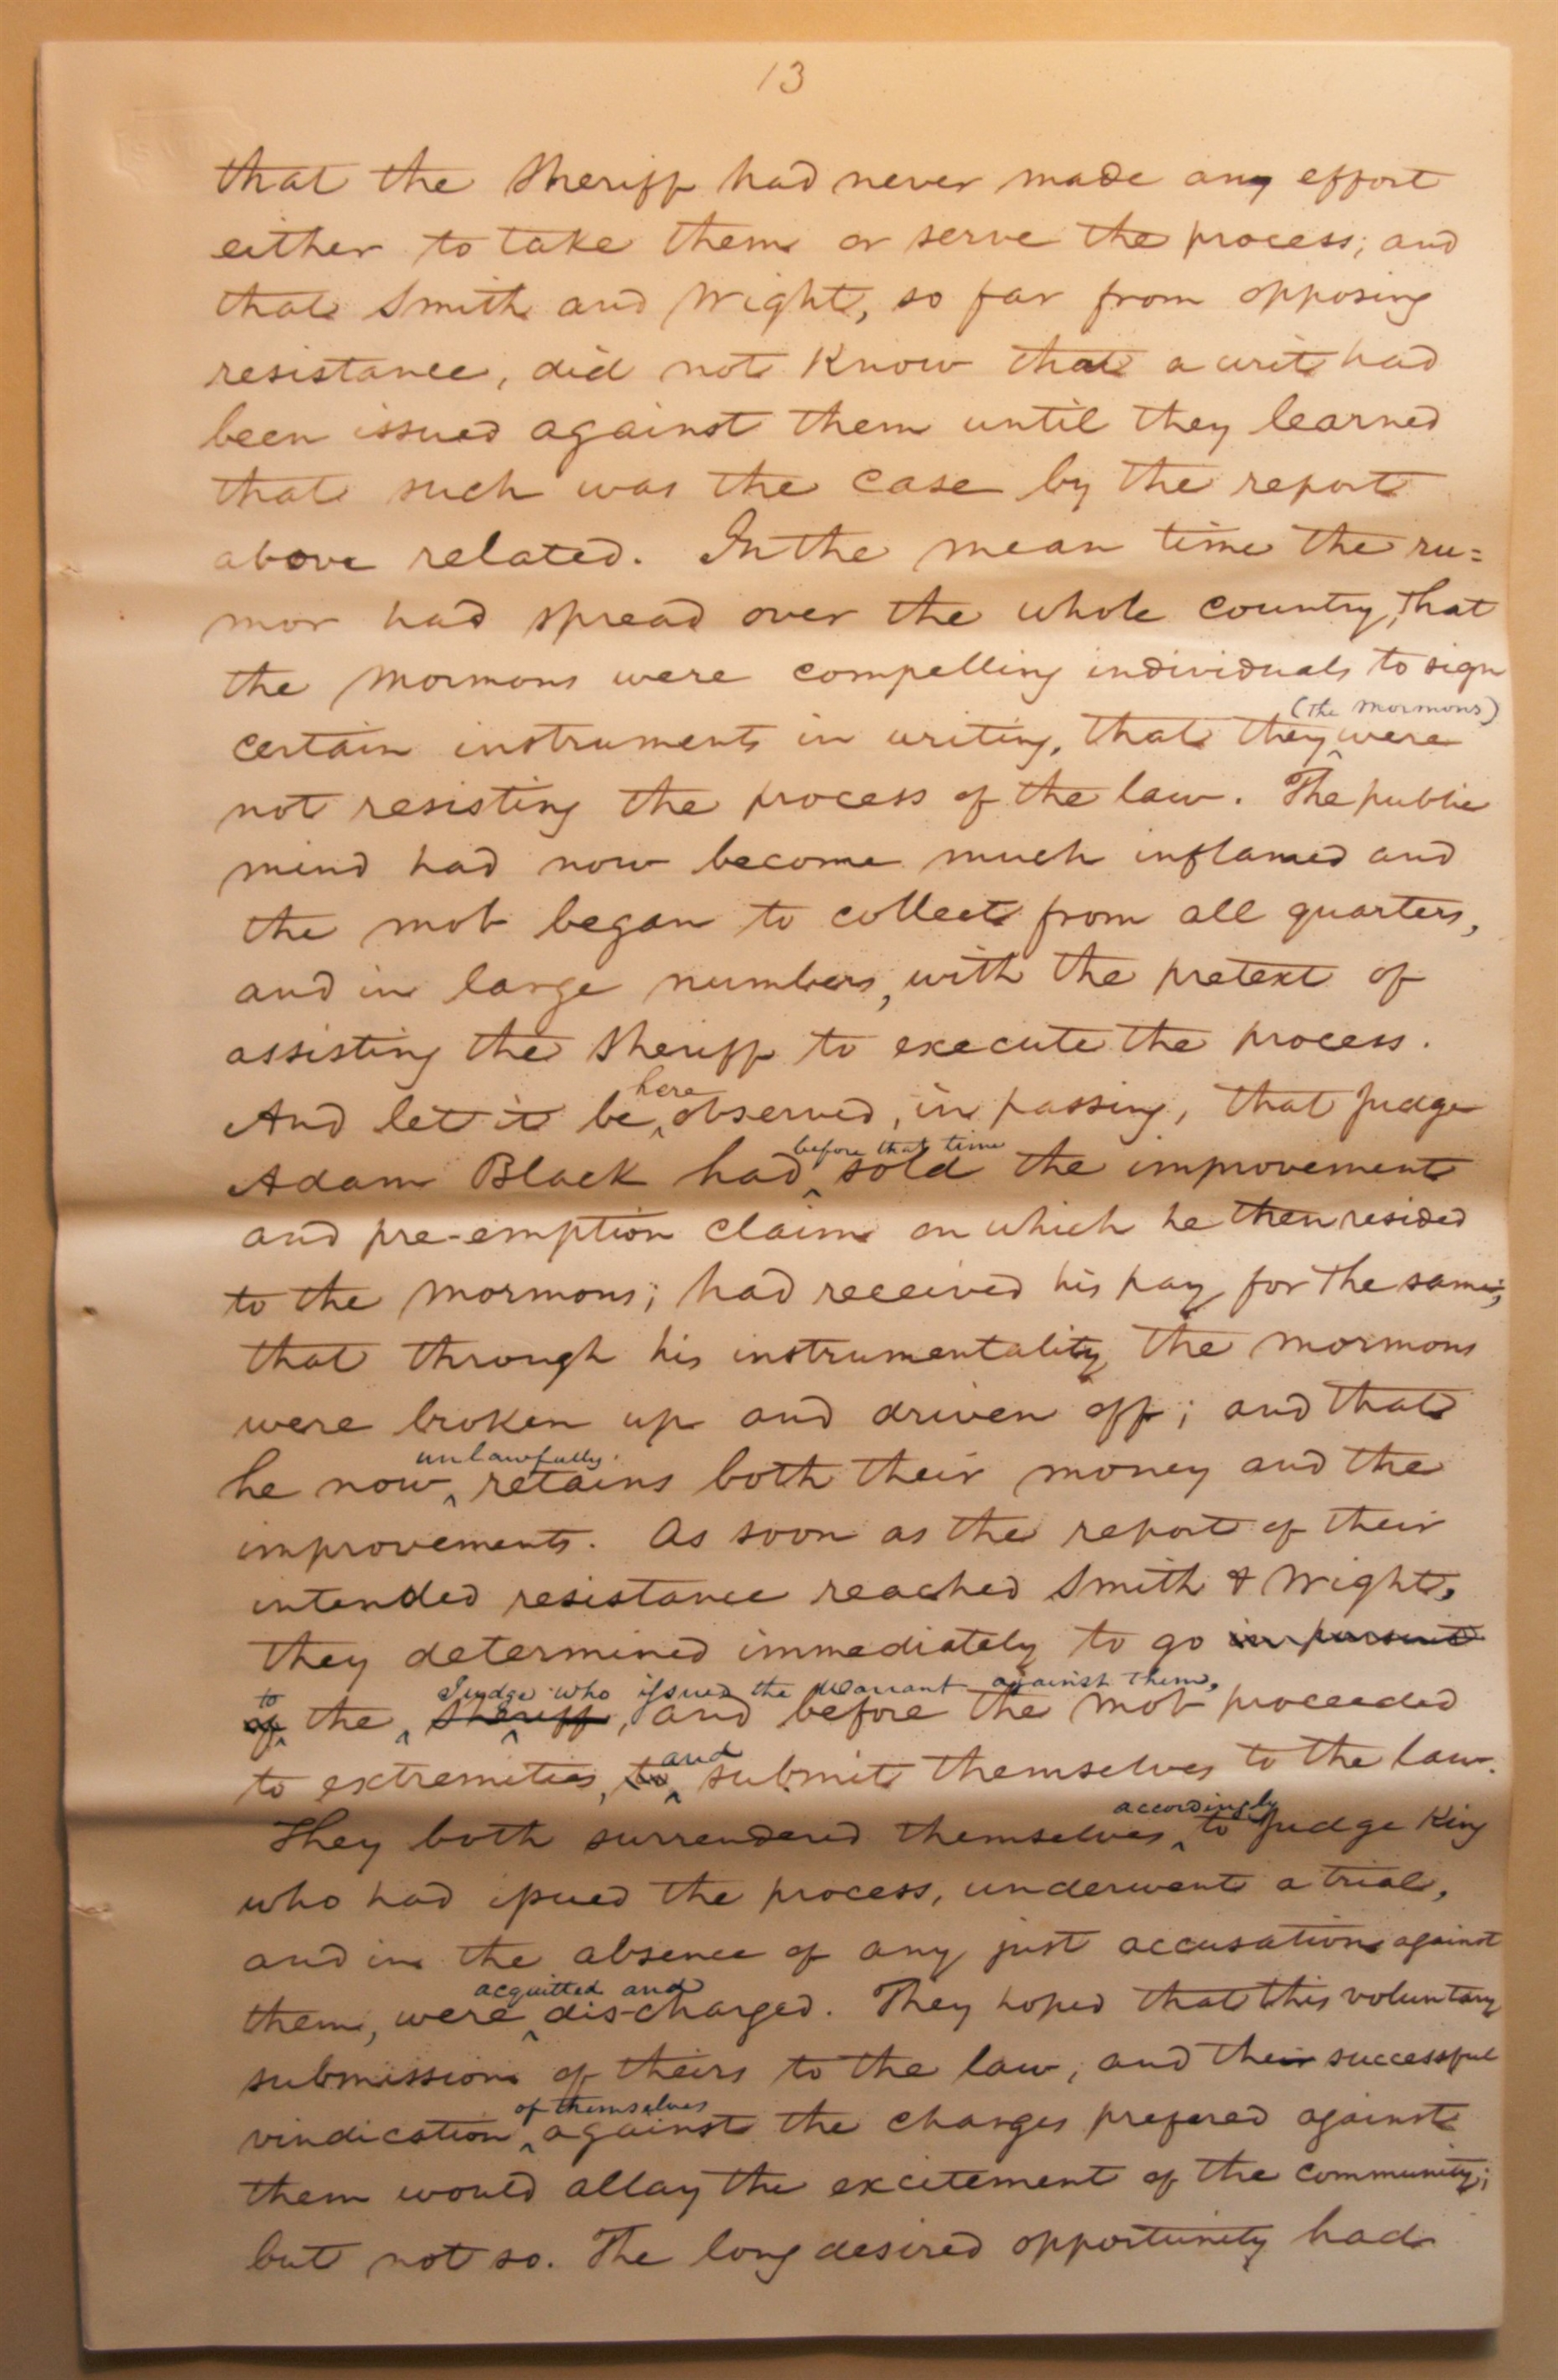 13
that the Sheriff had never made any effort
either to take them or serve the process; and
that Smith and Wright, so far from opposing
resistance, did not know that a writ had
been issued against them until they learned
that such was the case by the report
above related. In the mean time the ru=
mor had spread over the whole country, that
the Mormons were compelling individuals to sign
(the Mormons)
certain instruments in writing, that they ‸ were
not resisting the process of the law. The public
mind had now become much inflamed and
the mob began to collect from all quarters,
and in large numbers, with the pretext of
assisting the Sheriff to execute the process.
here
And let it be ‸ observed, in passing, that Judge
before that time
Adam Black had ‸ sold the improvement
and pre-emption claim on which he then resided
to the Mormons; had received his pay for the same;
that through his instrumentality the Mormons
were broken up and driven off; and that
unlawfully
he now ‸ retains both their money and the
improvements. As soon as the report of their
intended resistance reached Smith & Wright,
they determined immediately to go in pursuit
to Judge who issued the warrant against them,
of the ‸ Sheriff, and before the mob proceeded
and
to extremities, to ‸ submit themselves to the law.
accordingly
They both surrendered themselves ‸ to Judge King
who had issued the process, underwent a trial,
and in the absence of any just accusation against
acquitted and
them, were ‸ dis-charged. They hoped that this voluntary
submission of theirs to the law, and their successful
of themselves
vindication ‸ against the charges prefered against
them would allay the excitement of the community;
but not so. The long desired opportunity had